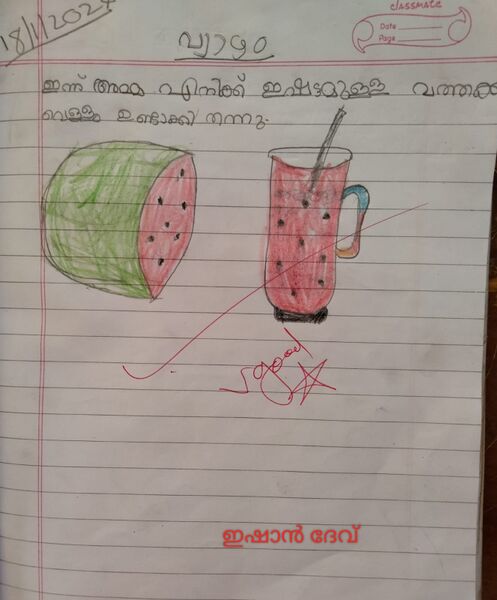 18/1/2024
classmate
Date
Page
വ്യാഴം
ഇന്ന് അമ്മ എനിക്ക് ഇഷ്ടമുള്ള വത്തക്ക
വെള്ളം ഉണ്ടാക്കി തന്നു.
Good
ഇഷാൻ ദേവ്